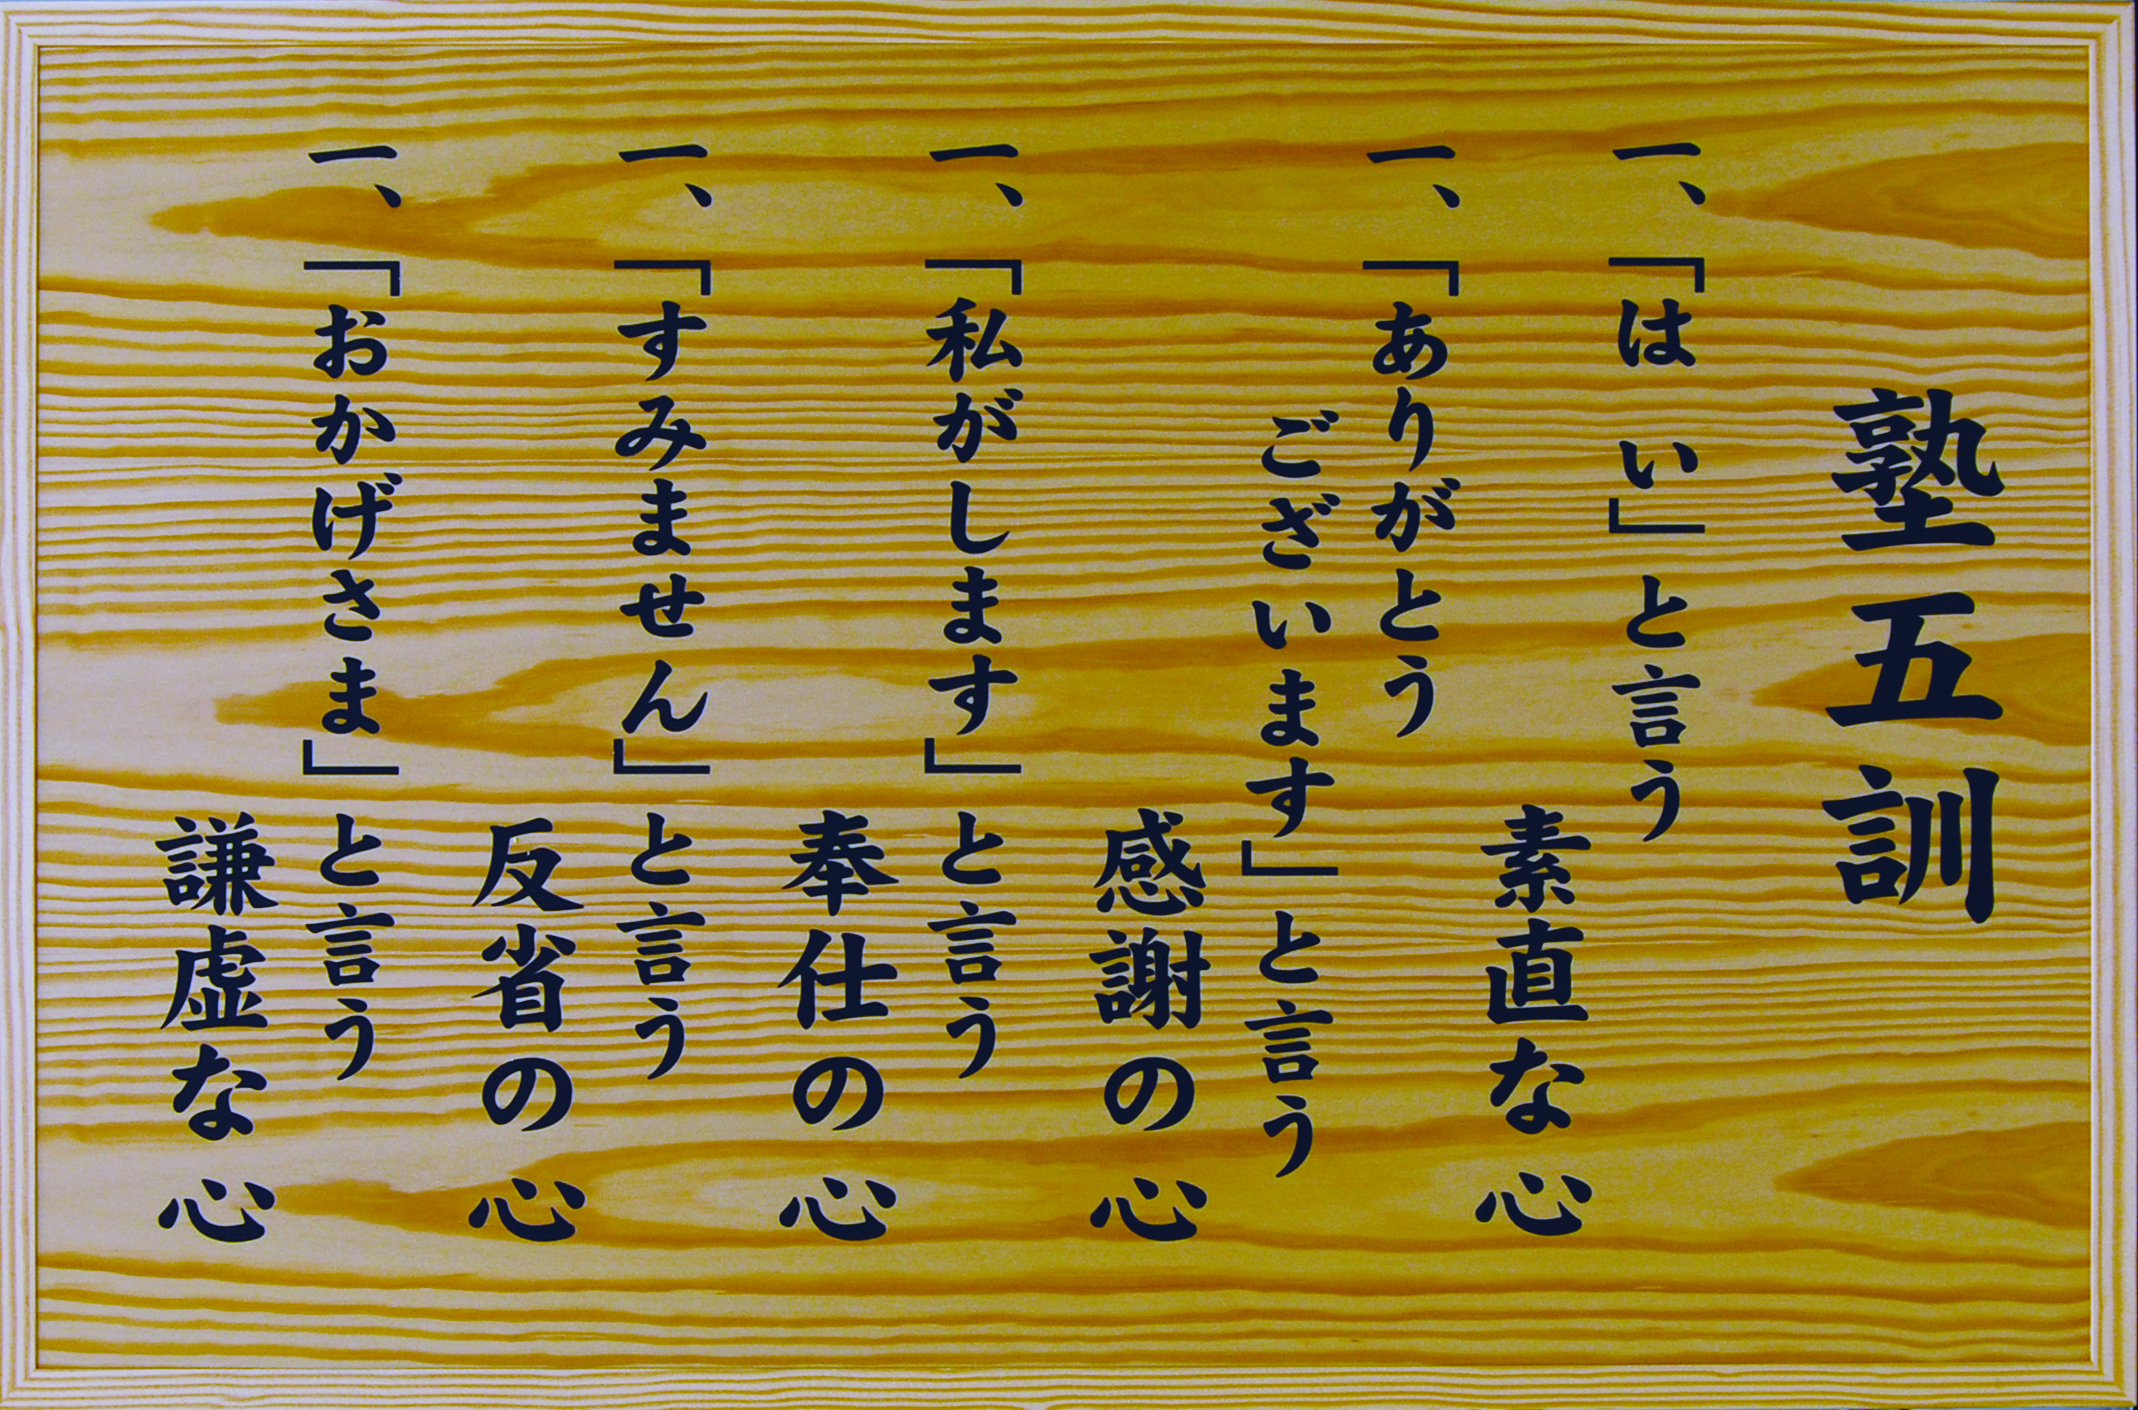 塾五訓
一、「はい」と言う
素直な心
一、「ありがとう
ございます」と言う
感謝の心
一、「私がします」と言う
奉仕の心
一、「すみません」と言う
反省の心
一、「おかげさま」と言う
謙虚な心